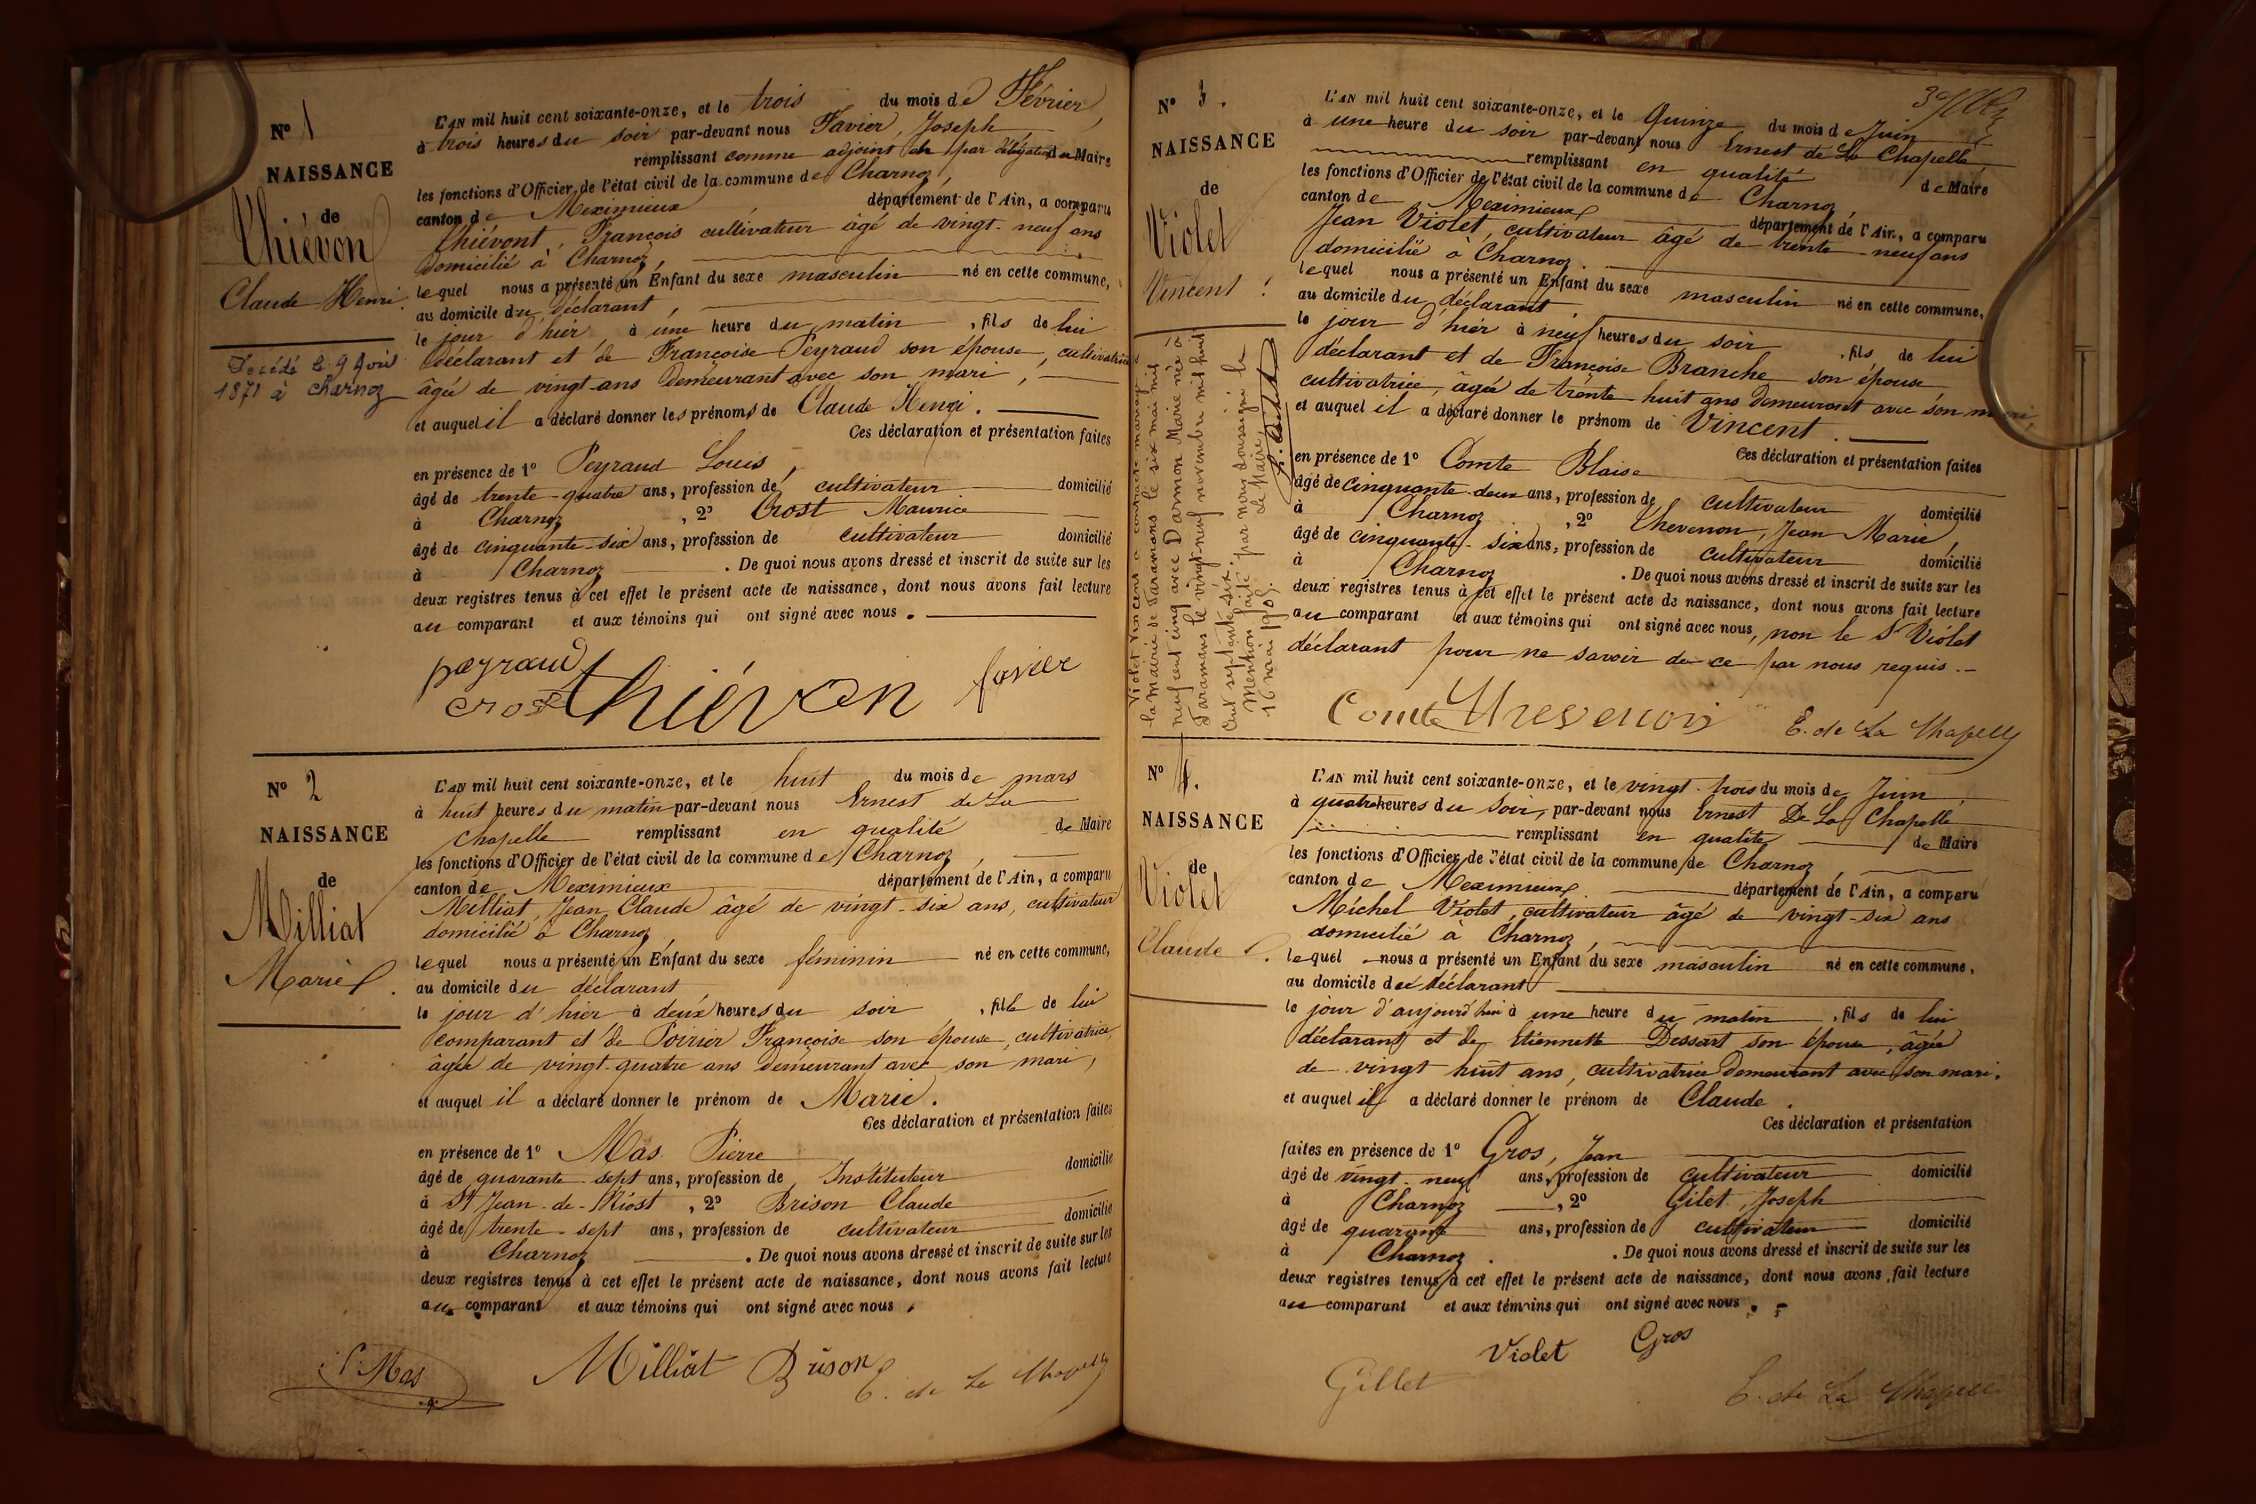 N° 1
NAISSANCE
de
Thiévon
Claude Henri.
Décédé le 9 Avril
1871 à Charnoz
L'AN mil huit cent soixante-onze, et le trois du mois de Février,
à trois heures du soir par-devant nous Favier, Joseph
remplissant comme adjoint par délégation du Maire
les fonctions d'Officier de l'état civil de la commune de Charnoz,
canton de Meximieux département de l'Ain, a comparu
Thiévont, François cultivateur âgé de vingt-neuf ans
domicilié à Charnoz,
lequel nous a présenté un Enfant du sexe masculin né en cette commune,
au domicile du déclarant,
le jour d'hier à une heure du matin, fils de lui
déclarant et de Françoise Peyraud son épouse, cultivatrice
âgée de vingt ans demeurant avec son mari,
et auquel il a déclaré donner les prénoms de Claude Henri.
Ces déclaration et présentation faites
en présence de 1° Peyraud Louis,
âgé de trente-quatre ans, profession de cultivateur domicilié
à Charnoz, 2° Crost Maurice
âgé de cinquante-six ans, profession de cultivateur domicilié
à Charnoz. De quoi nous avons dressé et inscrit de suite sur les
deux registres tenus à cet effet le présent acte de naissance, dont nous avons fait lecture
au comparant et aux témoins qui ont signé avec nous.
peyraud
crost thiévon favier
N° 2
NAISSANCE
de
Milliat
Marie.
L'AN mil huit cent soixante-onze, et le huit du mois de mars
à huit heures du matin par-devant nous Ernest de La
Chapelle remplissant en qualité de Maire
les fonctions d'Officier de l'état civil de la commune de Charnoz,
canton de Meximieux département de l'Ain, a comparu
Milliat, Jean Claude âgé de vingt-six ans, cultivateur
domicilié à Charnoz
lequel nous a présenté un Enfant du sexe féminin né en cette commune,
au domicile du déclarant
le jour d'hier à deux heures du soir, fille de lui
comparant et de Poirier Françoise son épouse, cultivatrice,
âgée de vingt-quatre ans demeurant avec son mari,
et auquel il a déclaré donner le prénom de Marie.
Ces déclaration et présentation faites
en présence de 1° Mas Pierre
âgé de quarante-sept ans, profession de Instituteur domicilié
à St Jean-de-Niost, 2° Brison Claude
âgé de trente-sept ans, profession de cultivateur domicilié
à Charnoz. De quoi nous avons dressé et inscrit de suite sur les
deux registres tenus à cet effet le présent acte de naissance, dont nous avons fait lecture
au comparant et aux témoins qui ont signé avec nous.
P. Mas Milliat Brison E. de La Chapelle
N° 3.
NAISSANCE
de
Violet
Vincent.
Violet Vincent a contracté mariage à
la mairie de Faramans le six mai mil
neuf cent cinq avec Darmon Marie née à
Faramans le vingt-neuf novembre mil huit
cent septante-six.
Mention faite par nous soussigné le
16 mai 1905. Le Maire,
L'AN mil huit cent soixante-onze, et le Quinze du mois de Juin
à une heure du soir par-devant nous Ernest de La Chapelle
remplissant en qualité de Maire
les fonctions d'Officier de l'état civil de la commune de Charnoz,
canton de Meximieux département de l'Ain, a comparu
Jean Violet, cultivateur âgé de trente-neuf ans
domicilié à Charnoz.
lequel nous a présenté un Enfant du sexe masculin né en cette commune,
au domicile du déclarant
le jour d'hier à neuf heures du soir, fils de lui
déclarant et de Françoise Branche son épouse
cultivatrice, âgée de trente-huit ans demeurant avec son mari,
et auquel il a déclaré donner le prénom de Vincent.
Ces déclaration et présentation faites
en présence de 1° Comte Blaise
âgé de cinquante-deux ans, profession de cultivateur domicilié
à Charnoz, 2° Thevenon, Jean Marie,
âgé de cinquante-six ans, profession de cultivateur domicilié
à Charnoz. De quoi nous avons dressé et inscrit de suite sur les
deux registres tenus à cet effet le présent acte de naissance, dont nous avons fait lecture
au comparant et aux témoins qui ont signé avec nous, non le Sr Violet
déclarant pour ne savoir de ce par nous requis.
Comte Thevenon E. de La Chapelle
N° 4.
NAISSANCE
de
Violet
Claude.
L'AN mil huit cent soixante-onze, et le vingt-trois du mois de Juin,
à quatre heures du soir, par-devant nous Ernest De La Chapelle
remplissant en qualité de Maire
les fonctions d'Officier de l'état civil de la commune de Charnoz
canton de Meximieux. département de l'Ain, a comparu
Michel Violet, cultivateur âgé de vingt-six ans
domicilié à Charnoz,
lequel nous a présenté un Enfant du sexe masculin né en cette commune,
au domicile du déclarant
le jour d'aujourd'hui à une heure du matin, fils de lui
déclarant et de Etiennette Dessart son épouse, âgée
de vingt huit ans, cultivatrice demeurant avec son mari.
et auquel il a déclaré donner le prénom de Claude.
Ces déclaration et présentation
faites en présence de 1° Gros, Jean
âgé de vingt-neuf ans, profession de cultivateur domicilié
à Charnoz, 2° Gilet, Joseph
âgé de quarante ans, profession de cultivateur domicilié
à Charnoz. De quoi nous avons dressé et inscrit de suite sur les
deux registres tenus à cet effet le présent acte de naissance, dont nous avons fait lecture
au comparant et aux témoins qui ont signé avec nous.
Violet Gros
Gillet E. de La Chapelle